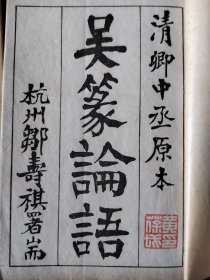 清卿中丞原本
吴篆論語
杭州鄒壽祺署耑